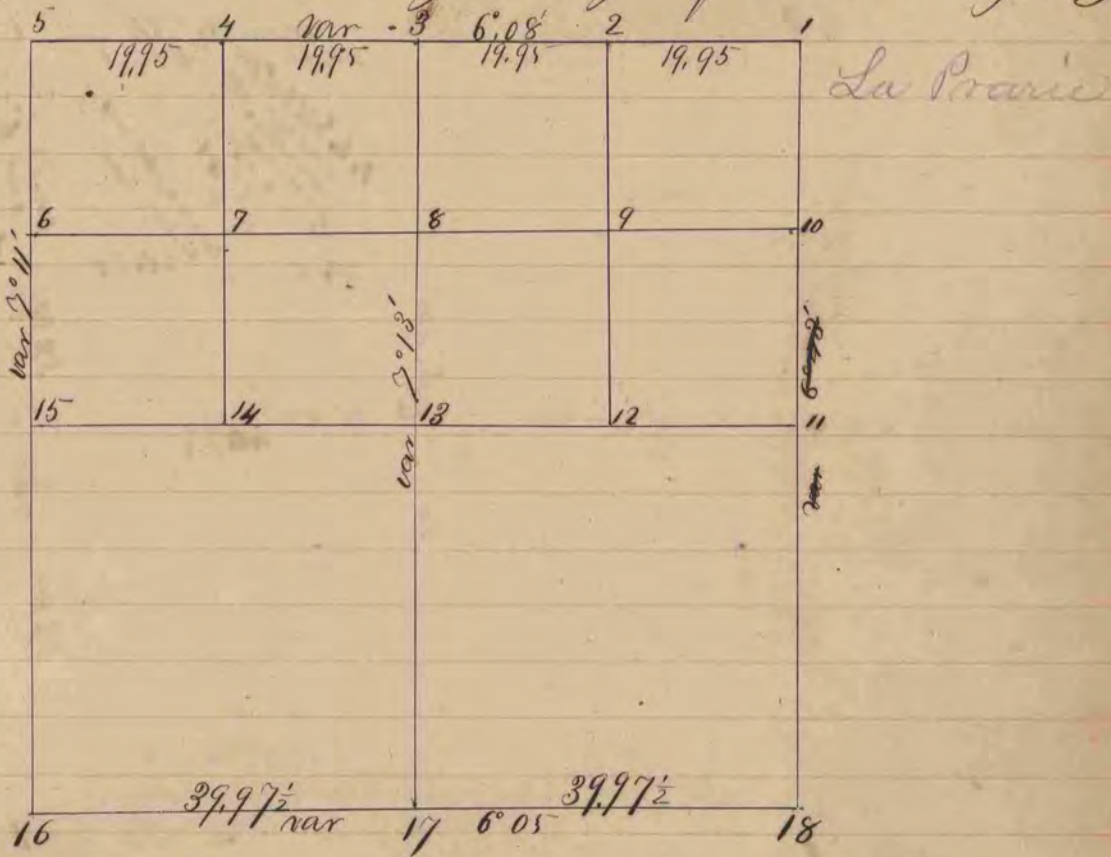 5 4 var - 3 6°.08' 2 1
19.95 19.95 19.95 19.95
La Prarie
6 7 8 9 10
var 3°11'
var 3°13'
15 14 13 12 11
var
39.97½ 39.97½
16 var 17 6°05 18